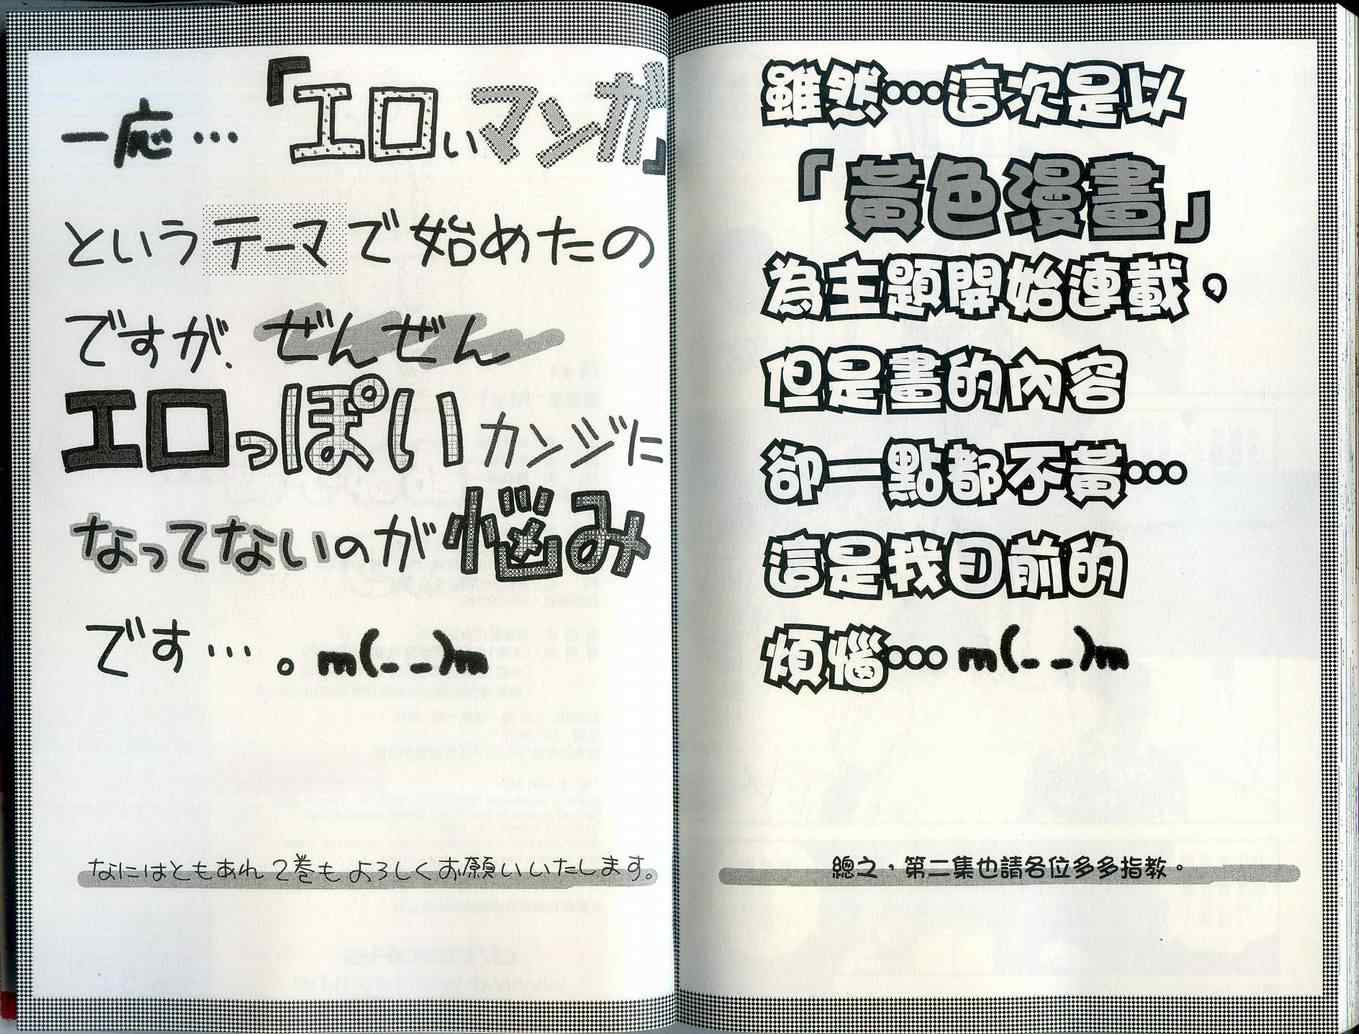 一応…「エロいマンガ」
というテーマで始めたの
ですが、ぜんぜん
エロっぽいカンジに
なってないのが悩み
です…。m(_ _)m
なにはともあれ2巻もよろしくお願いいたします。
雖然…這次是以
「黃色漫畫」
為主題開始連載。
但是畫的內容
卻一點都不黃…
這是我目前的
煩惱…m(_ _)m
總之，第二集也請各位多多指教。